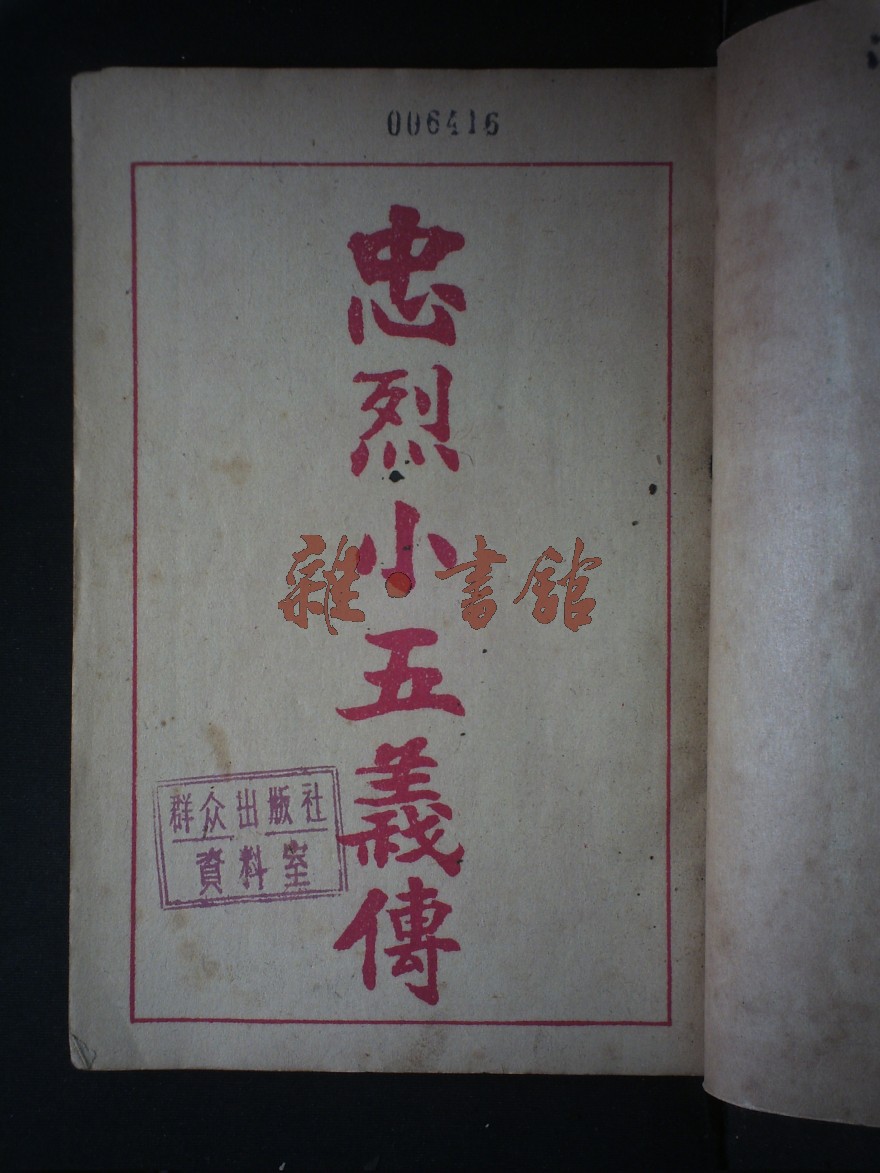 006416
忠烈小五義傳
雜·書館
群众出版社
資料室